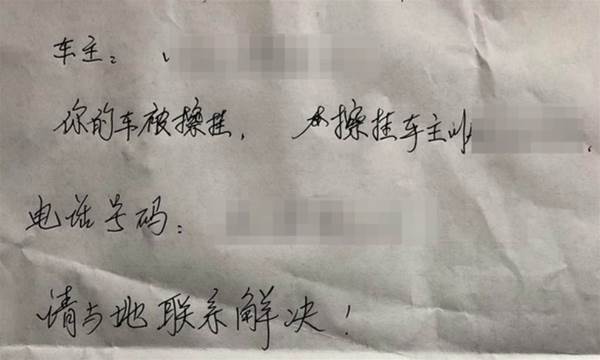 车主：
你的车被擦挂，擦挂车主叫
电话号码：
请与她联系解决！